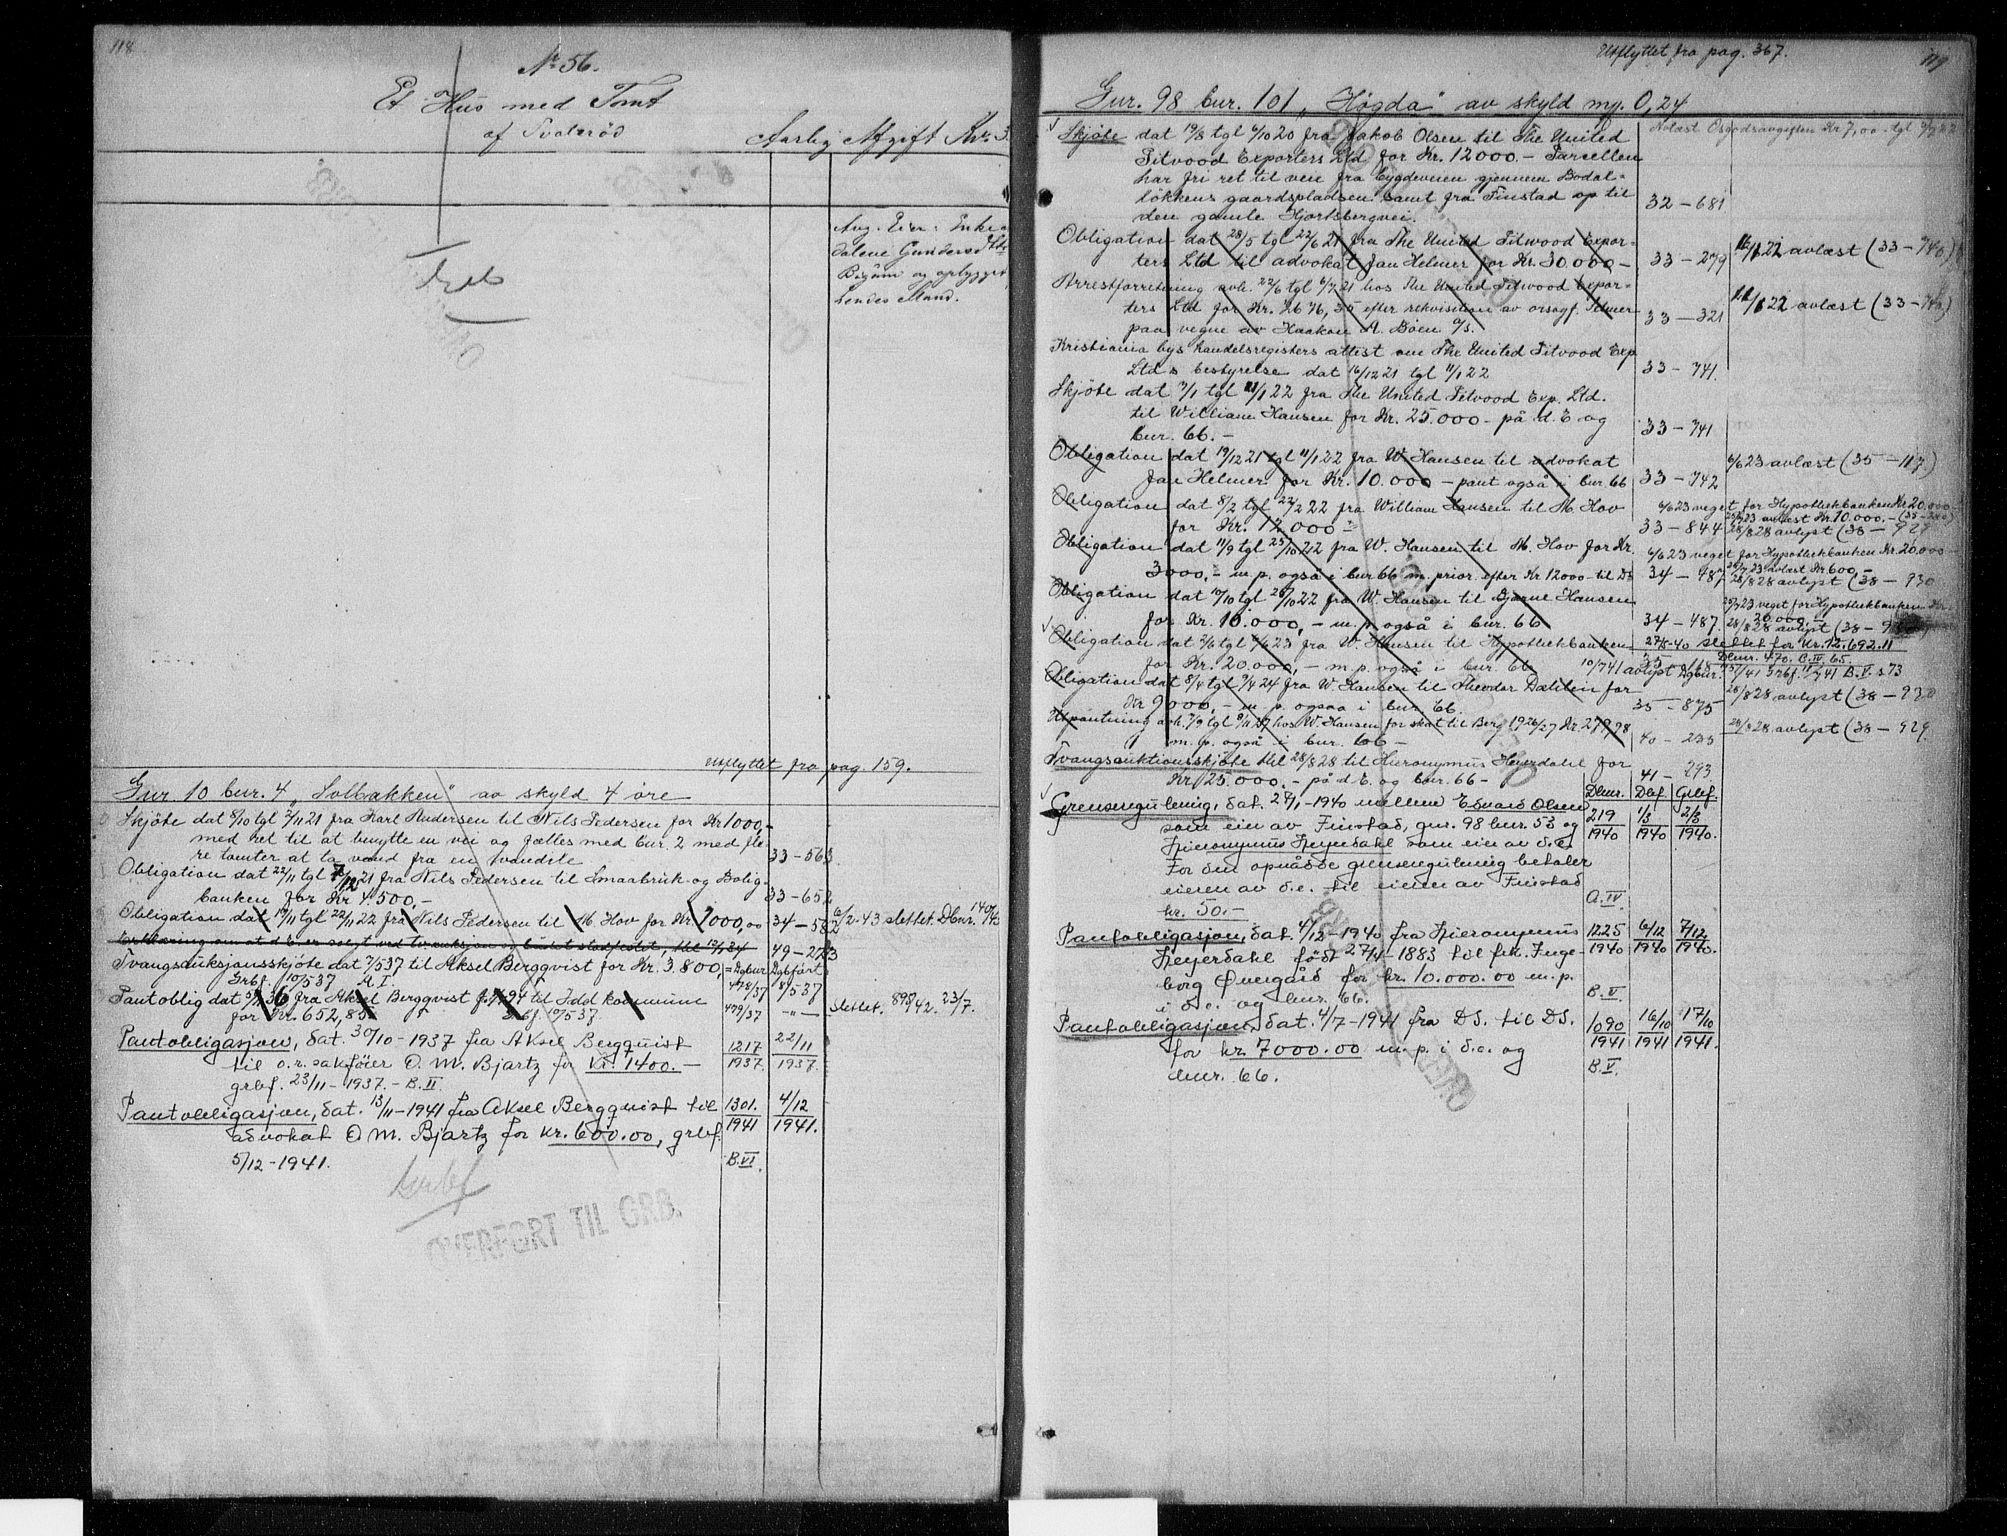 118
No 56.
Et Hus med Tomt
af Svalerød
Aarlig Afgift Kr. 3
Ang. Eier: Enke
Begjæm og opbygget
hendes Mand.
Frels
utflyttet fra pag. 159.
Gnr. 10 bnr. 4 „Solbakken" av skyld 4 øre
Skjøte dat 8/10 tgl 2/11 21 fra Karl Andersen til Nils Pedersen for Kr 1000,-
med ret til at benytte en vei og fælles med bnr. 2 med fle-
re tomter at ta vand fra en vandile 33-563
Obligation dat 22/11 tgl 7/12 21 fra Nils Pedersen til Smaabruk- og Bolig-
banken for Kr 4.500,- 33-652
Obligation dat 19/11 tgl 22/11 22 fra Nils Pedersen til M. Hov for Kr. 1000,00 34-582 6/2-43 slettet. Dbnr. 140/43
49-273
Tvangsauksjonsskjøte dat 7/5 37 til Aksel Bergqvist for Kr. 3.800 = Dgbnr 478/37 Dgbført 8/5 37
Grbf. 10/5 37 A I.
Pantoblig dat 5/11 36 fra Aksel Bergqvist f. 1894 til Idd kommune 479/37 —"—
for Kr. 652,85 Grbf. 10/5 37 slettet. 898/42. 23/7.
Pantobligasjon, dat. 30/10-1937 fra Aksel Bergquist 1217 22/11
til o.r. sakfører O. M. Bjartz for Kr. 1400.- 1937. 1937.
grbf. 23/11-1937.- B. II.
Pantobligasjon, dat. 13/11-1941 fra Aksel Bergquist til 1301. 4/12
advokat O. M. Bjartz for kr. 600.00, grbf. 1941 1941.
5/12-1941. B. VI.
OVERFØRT TIL GRB.
Utflyttet fra pag. 367.
119
Gnr. 98 bnr. 101 „Høgda" av skyld mg. 0,24
Skjøte dat 19/8 tgl 6/10 20 fra Jakob Olsen til The United
Pitwood Exporters Ltd for Kr. 12000.- Parcellen
har fri ret til vei fra bygdeveien gjennem Bodal-
løkkens gaardsplads samt fra Finstad op til
den gamle Hjortsbergvei. 32-681
Obligation dat 28/5 tgl 22/6 21 fra The United Pitwood Expor-
ters Ltd til advokat Jan Helmer for Kr. 30.000- 33-279 11/1 22 avlæst (33-740)
Arrestforretning avh. 22/6 tgl 6/7 21 hos The United Pitwood Expor-
ters Ltd for Kr. 2676,35 efter rekvisition av orsagf. 33-321 11/1 22 avlæst (33-740)
paa vegne av Haakon A. Böen A/S.
Kristiania bys handelsregisters attest om The United Pitwood Exp
Ltd s bestyrelse dat 16/12 21 tgl 11/1 22 33-741.
Skjøte dat 7/1 tgl 11/1 22 fra The United Pitwood Exp. Ltd.
til William Hansen for Kr. 25.000- på d. E og
bnr. 66.- 33-741
Obligation dat 19/12 21 tgl 11/1 22 fra W. Hansen til advokat
Jan Helmer for Kr. 10.000- pant også i bnr. 66 33-742 6/6 23 avlæst (35-117)
Obligation dat 8/2 tgl 22/2 22 fra William Hansen til M Hov 6/6 23 veget for Hypothekbanken Kr. 20.000-
for Kr. 12.000- 33-844 28/8 28 avlyst (38-929
Obligation dat 11/9 tgl 25/10 22 fra W. Hansen til M. Hov for Kr. 6/6 23 veget for Hypothekbanken Kr. 20.000-
3000,- m.p. også i bnr 66 m. prior. efter Kr 12000- til Ds 34-487 28/8 28 avlyst (38-930
Obligation dat 10/10 tgl 26/10 22 fra W. Hansen til Bjarne Hansen
for Kr. 10.000,- m.p. også i bnr. 66 34-487. 28/8 28 avlyst (38-
Obligation dat 2/6 tgl 6/6 23 fra W. Hansen til Hypothekbanken 27/8-40 slettet for Kr. 12.692.11
for Kr. 20.000,- m.p. også i bnr. 66 Dbnr. 470. B. IV. 65.
Obligation dat 8/4 tgl 9/4 24 fra W. Hansen til Theodor Dahlen for
Kr 9000,- m.p. ogsaa i bnr. 66. 35-875 28/8 28 avlyst (38-930
Utpantning avh. 7/9 tgl 9/11 27 hos W. Hansen for skat til Berg 1926/27 Kr. 279,78
m.p. også i bnr. 66- 40-233 28/8 28 avlyst (38-929
Tvangsauktionsskjøte tgl 28/8 28 til Hieronymus Heyerdahl for
Kr 25.000,- på d. E. og bnr. 66- 41-293
Dbnr. Dbf. Grbf.
Grenseregulering, dat. 27/1-1940 mellem Edvard Olsen 219 1/3 2/3
som eier av Finstad, gnr. 98 bnr. 53 og 1940 1940 1940.
Hieronymus Heyerdahl som eier av d.e.
For den opnådde grenseregulering betaler
eieren av d.e. til eieren av Finstad
kr. 50.- A. IV
Pantobligasjon, dat. 4/12-1940 fra Hieronymus 1225 6/12 7/12
Heyerdahl født 27/4-1883 til frk. Inge- 1940 1940 1940.
borg Øvergård for kr. 10.000.00 m.p.
i d.e. og bnr. 66. B. V.
Pantobligasjon, dat. 4/7-1941 fra DS. til DS. 1090 16/10 17/10
for kr. 7000.00 m.p. i d.e. og 1941 1941 1941.
bnr. 66. B. V.